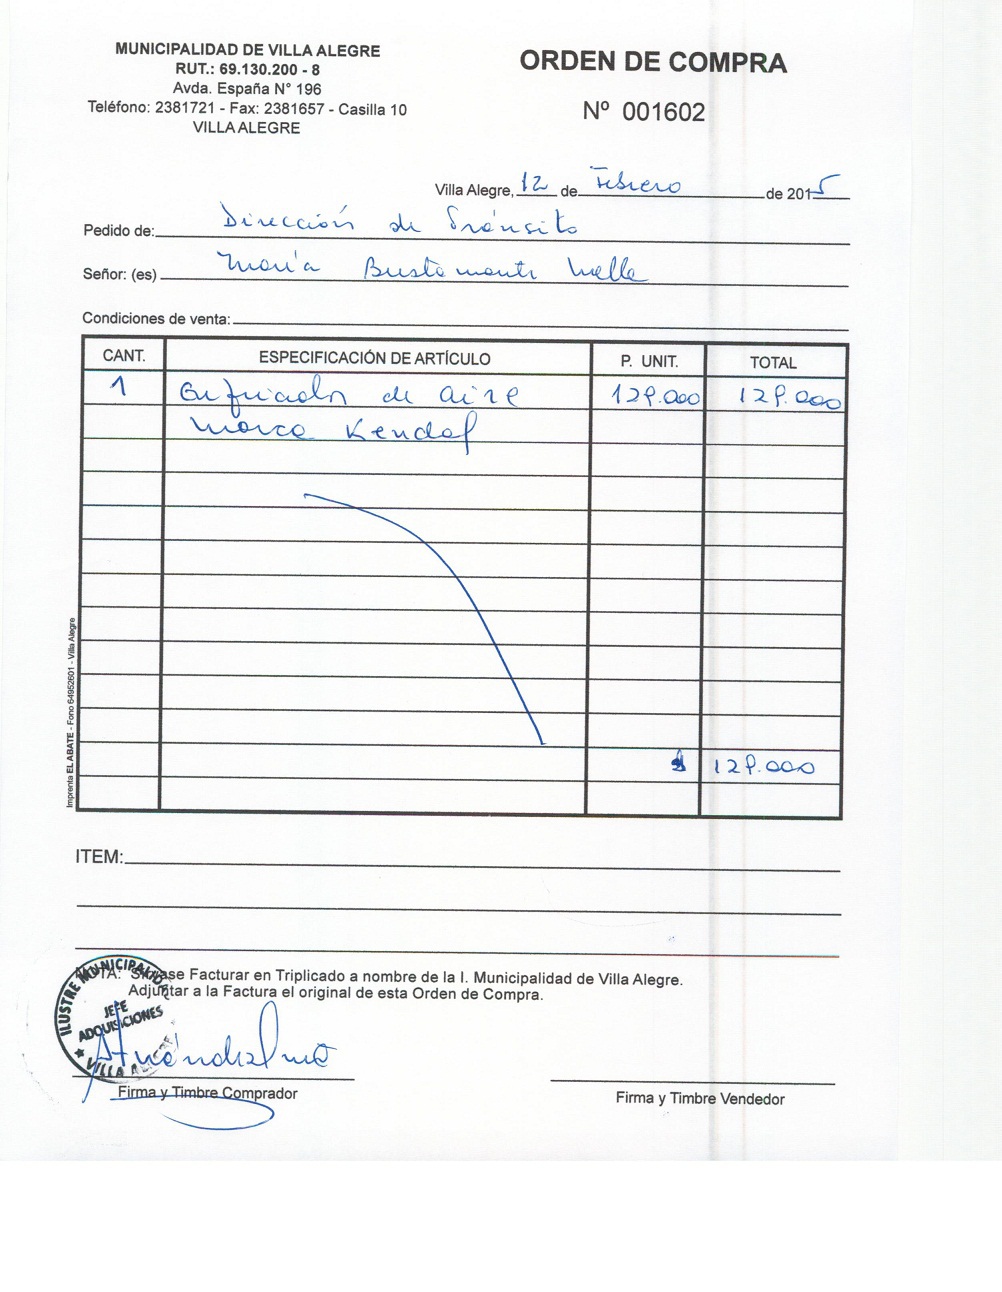 MUNICIPALIDAD DE VILLA ALEGRE
RUT.: 69.130.200 - 8
Avda. España N° 196
Teléfono: 2381721 - Fax: 2381657 - Casilla 10
VILLA ALEGRE
ORDEN DE COMPRA
Nº 001602
Villa Alegre, 12 de Febrero de 2015
Pedido de: Dirección de Tránsito
Señor: (es) María Bustamante Mella
Condiciones de venta:
CANT. ESPECIFICACIÓN DE ARTÍCULO P. UNIT. TOTAL
1 Enfriador de aire 129.000 129.000
Marca Kendal
$ 129.000
Imprenta EL ABATE - Fono 64952601 - Villa Alegre
ITEM:
NOTA: Sírvase Facturar en Triplicado a nombre de la I. Municipalidad de Villa Alegre.
Adjuntar a la Factura el original de esta Orden de Compra.
ILUSTRE MUNICIPALIDAD
JEFE
ADQUISICIONES
VILLA ALEGRE
Firma y Timbre Comprador
Firma y Timbre Vendedor